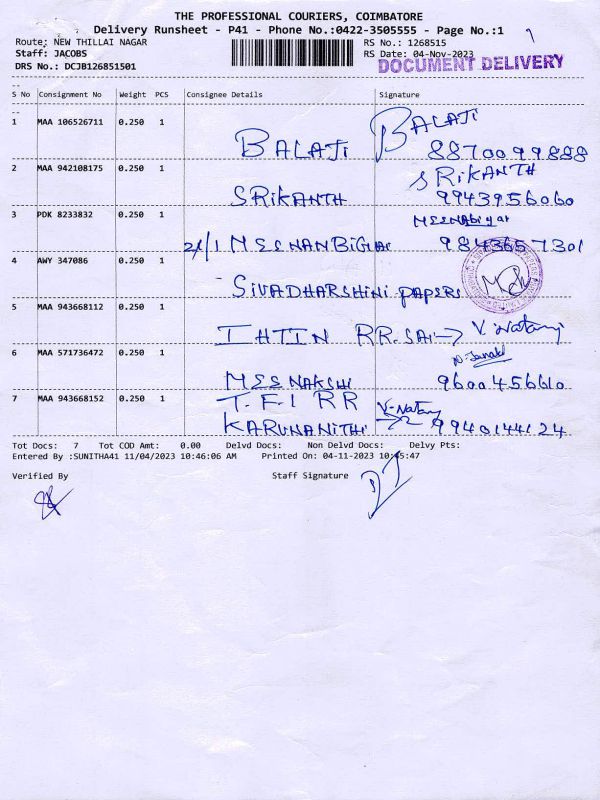 THE PROFESSIONAL COURIERS, COIMBATORE
Delivery Runsheet - P41 - Phone No.:0422-3505555 - Page No.:1
Route: NEW THILLAI NAGAR
RS No.: 1268515
Staff: JACOBS
RS Date: 04-Nov-2023
DRS No.: DCJB126851501
DOCUMENT DELIVERY
S No Consignment No Weight PCS Consignee Details Signature
1 MAA 106526711 0.250 1
BALAJI BALAJI
8870099888
2 MAA 942108175 0.250 1
SRIKANTH SRIKANTH
9943956060
3 PDK 8233832 0.250 1
MEENAMBIGAI
9843657301
4 AWY 347086 0.250 1
SIVADHARSHINI PAPERS
5 MAA 943668112 0.250 1
IHTIN RR.SAI V. Nataraj
6 MAA 571736472 0.250 1
MEENAKSHI 9600456610
7 MAA 943668152 0.250 1
T.F.I RR
KARUNANITHI 9940144124
Tot Docs: 7 Tot COD Amt: 0.00 Delvd Docs: Non Delvd Docs: Delvy Pts:
Entered By :SUNITHA41 11/04/2023 10:46:06 AM Printed On: 04-11-2023
Verified By Staff Signature